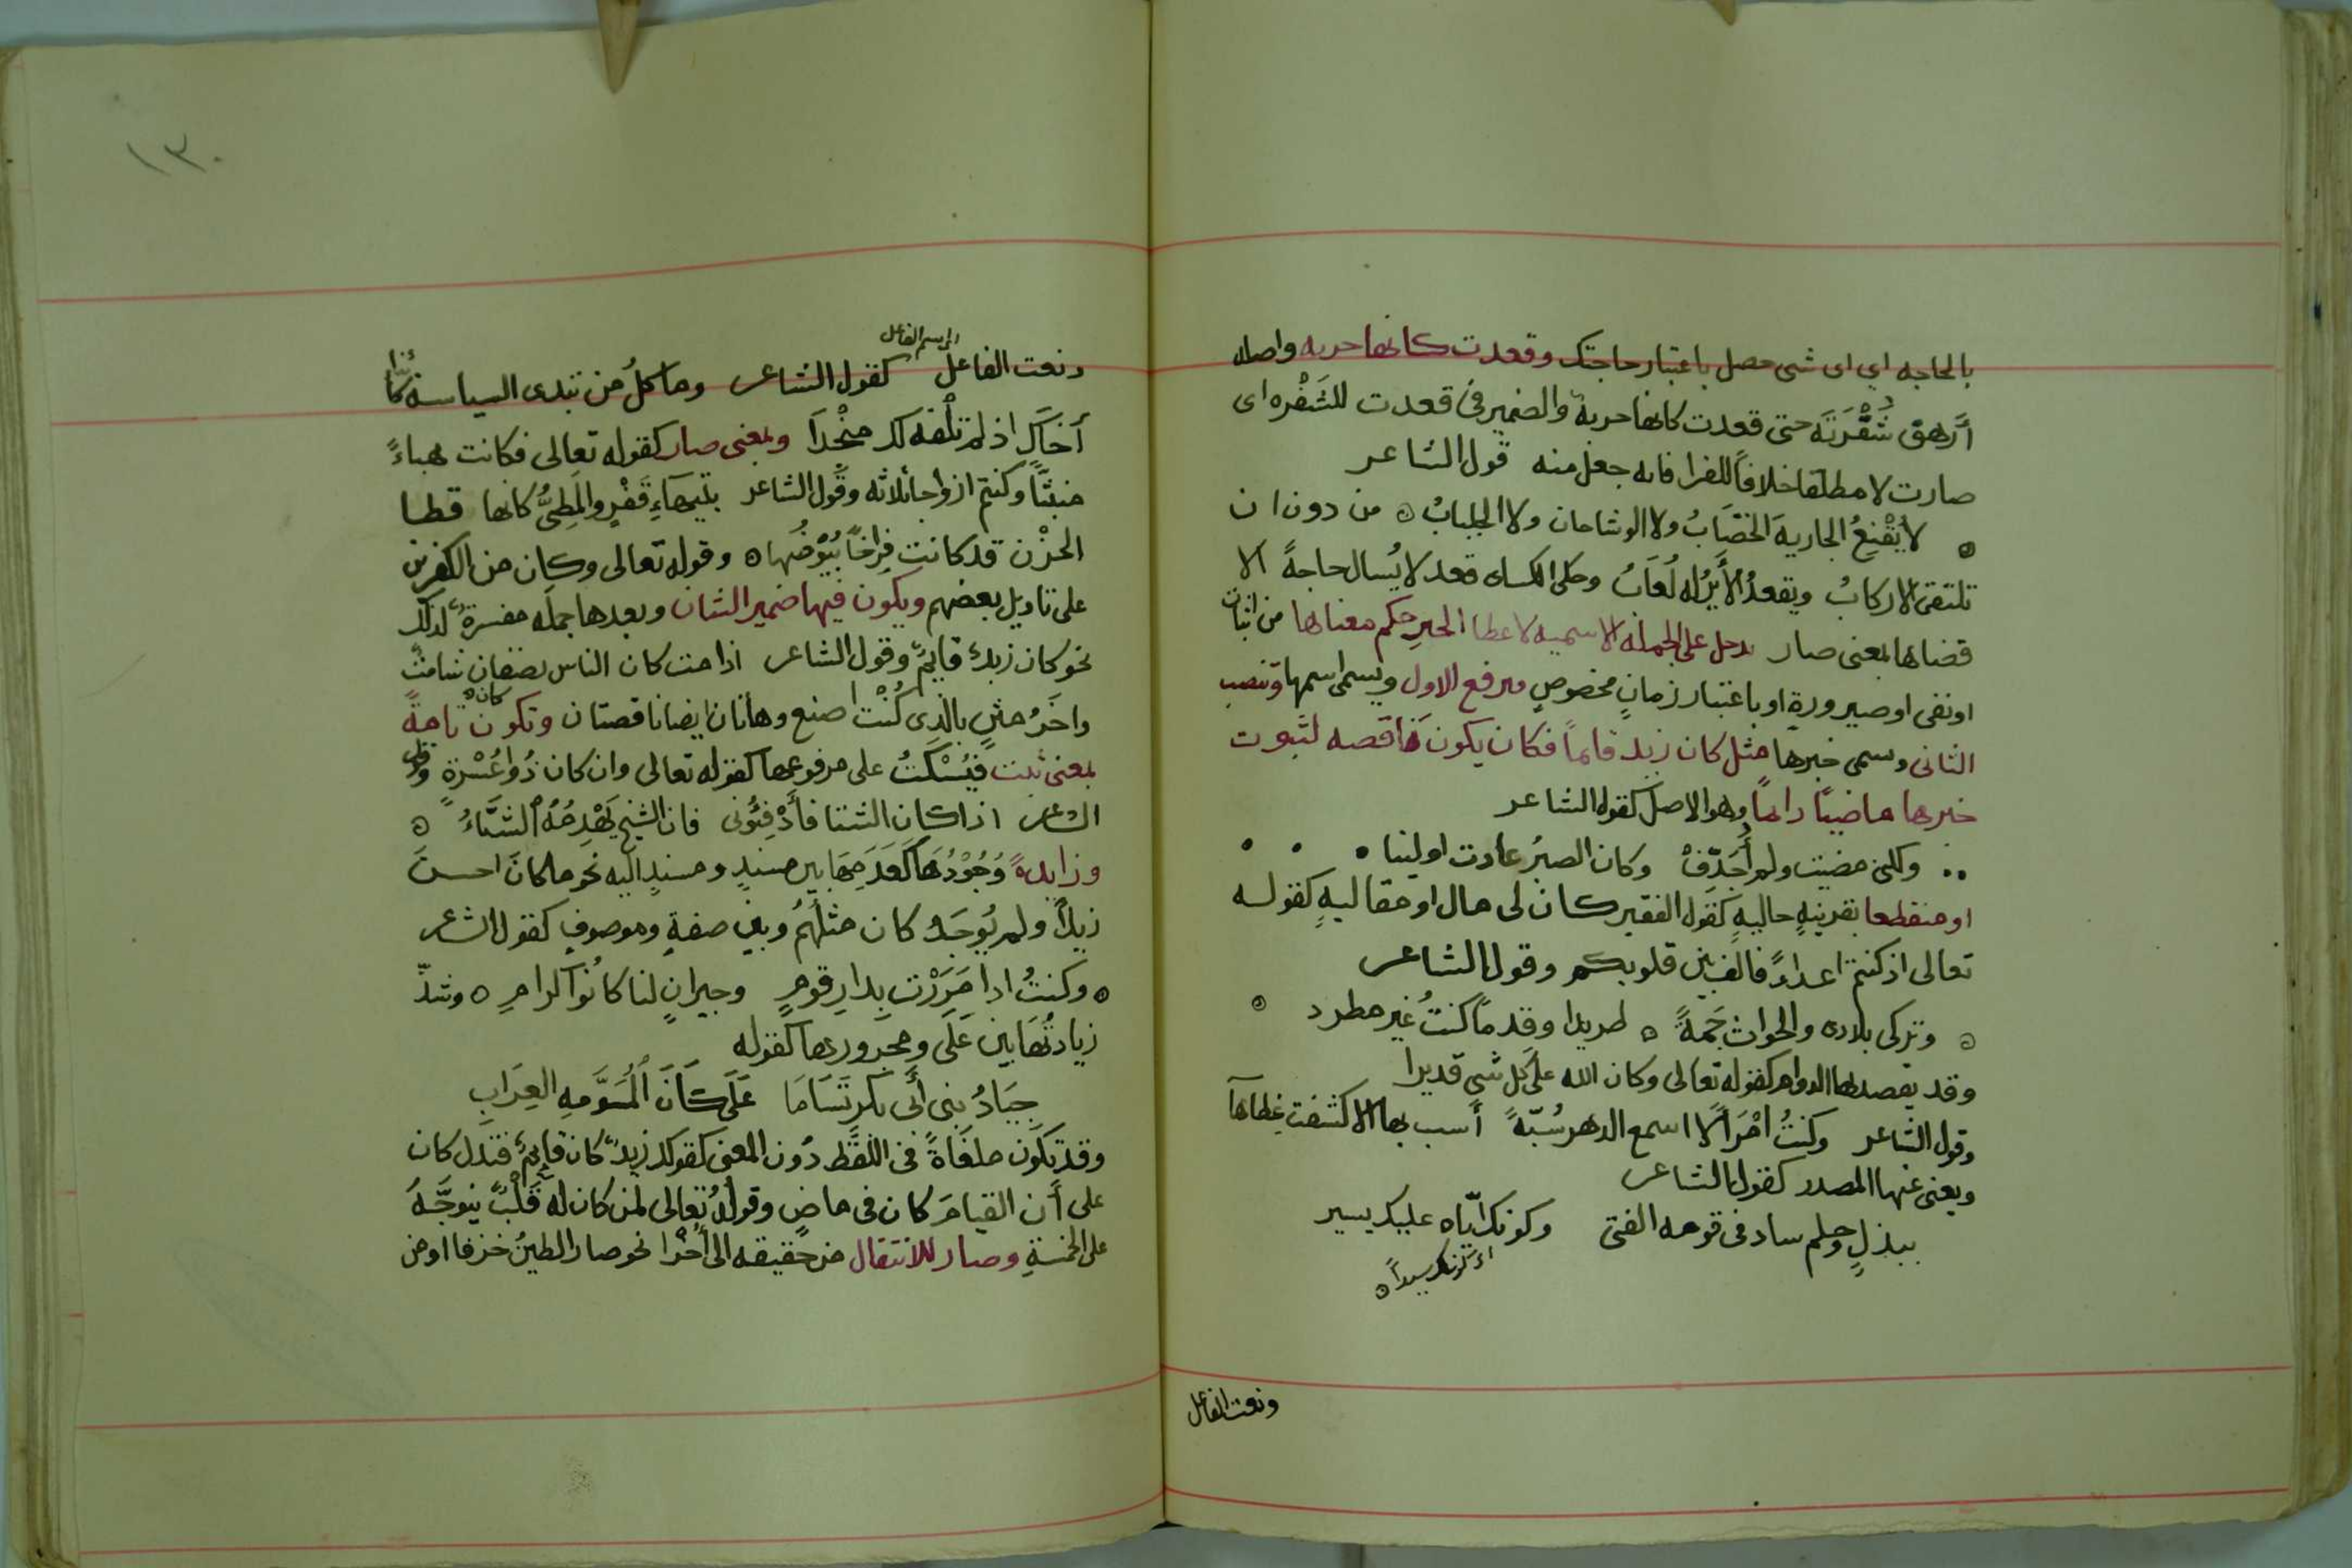 بالحاجه اي اى شى حصل باعتبار حاجتك وقعدت كانها حربه واصله
أَرهق شَفْرَتَه حتى قعدت كانها حربة والضمير في قعدت للشَفْره اى
صارت لا مطلقا خلافاً للفرا فانه جعل منه قول الشاعر
لا يُقْنِعُ الجاريةَ الخضَابُ ولا الوشاحان ولا الجلبابُ ه من دون ان
تلتقى الاركابُ ويقعدُ الأَيرُ له لُعَابُ وحكى الكساى قعد لا يُسال حاجةً الا
قضاها بمعنى صار يدخل على الجملة الاسميه لاعطا الخبرِ حكم معناها من اثبات
او نفى او صيرورةٍ او باعتبار زمانٍ مخصوصٍ فيرفع الاول ويسمى اسمها وتنصب
الثانى ويسمى خبرها مثل كان زيد قايماً فكان يكون ناقصه لثبوت
خبرها ماضيًا دايماً وهو الاصل كقوله الشاعر
ولكنى مضيت ولم أُجَدِّفْ وكان الصبرُ عادت اولينا
او منقطعا بقرينهٍ حاليهٍ كقول الفقير كان لى مال او مقاليهٍ كقوله
تعالى اذ كنتم اعداءً فالف بين قلوبكم وقول الشاعر
ه وتركى بلادى والحوادث جَمةً ه طريدا وقد ماً كنتُ غير مطرد ه
وقد يقصد بها الدوام كقوله تعالى وكان الله على كل شي قديرا
وقول الشاعر وكنتُ امْرَأً لا اسمع الدهر سُبّةً أسب بها الا كشفت غِطاهآ
ويعنى عنها المصدر كقول الشاعر
ببذلٍ وحلم ساد في قومه الفتى وكونك ايّاه عليك يسير
كونك سيداً ه
ونعت الفاعل
١٣٠
اى اسم الفاعل
ونعت الفاعل كقول الشاعر وما كلُ من تبدى البياسة كائنا
أخَاكَ اذ لم تلْفه لك منْجْداَ وبمعنى صار كقوله تعالى فكانت هباءً
منبثّاً وكنتم ازواجا ثلاثه وقول الشاعر بتيهآءِ قَفْرٍ والمَطِىُّ كانها قطا
الحزْن قد كانت فِراخًا بُيُوْضُها ه وقوله تعالى وكان من الكفرين
على تاويل بعضهم ويكون فيها ضمير الشان وبعدها جمله مفسرةٌ لذلك
نحو كان زيدٌ قايمٌ وقول الشاعر اذا مت كان الناس نصفان شامتٌ
واخَرُ مثنٍ بالذى كُنْت اصنع وهاتان ايضا ناقصتان وتكون كان تامةً
بمعنى ثبت فيُسْكَتُ على مرفوعها كقوله تعالى وان كان ذُو اعُسْرَةٍ وقول
الشاعر اذا كان الشتا فأَدْفِئُونى فان الشيخ يَهْدِمُهُ الشتَّاءُ ه
وزايدةً وَجُوْدُهَا كَعَدَمِهَا بين مسندٍ ومسندٍ اليه نحو ما كان احسنَ
زيداً ولم يُوجَد كان مثلهُم وبين صفةٍ وموصوفٍ كقول الشاعر
ه وكنتُ اذا مَرَرْت بِدارِ قومٍ وجيرانٍ لنا كانُوآ كرامِ ه وشذّ
زيادتُهَا بين عَلَى ومجرورها كقوله
جِيَادُ بنى أَبى بكرٍ تَسَامَا عَلَى كَانَ المُسَوَّمهِ العِرَابِ
وقد تكون ملغَاةً في اللفظِ دُون المعنى كقولك زيدٌ كان قايمٌ فتدل كان
على أَن القيامَ كان في ماضٍ وقولُهُ تعالى لمن كان له قَلْبٌ يتوجَّهُ
على الخمسةِ وصار للانتقال من حقيقه الى أُخْرا نحو صار الطين خزفا او من